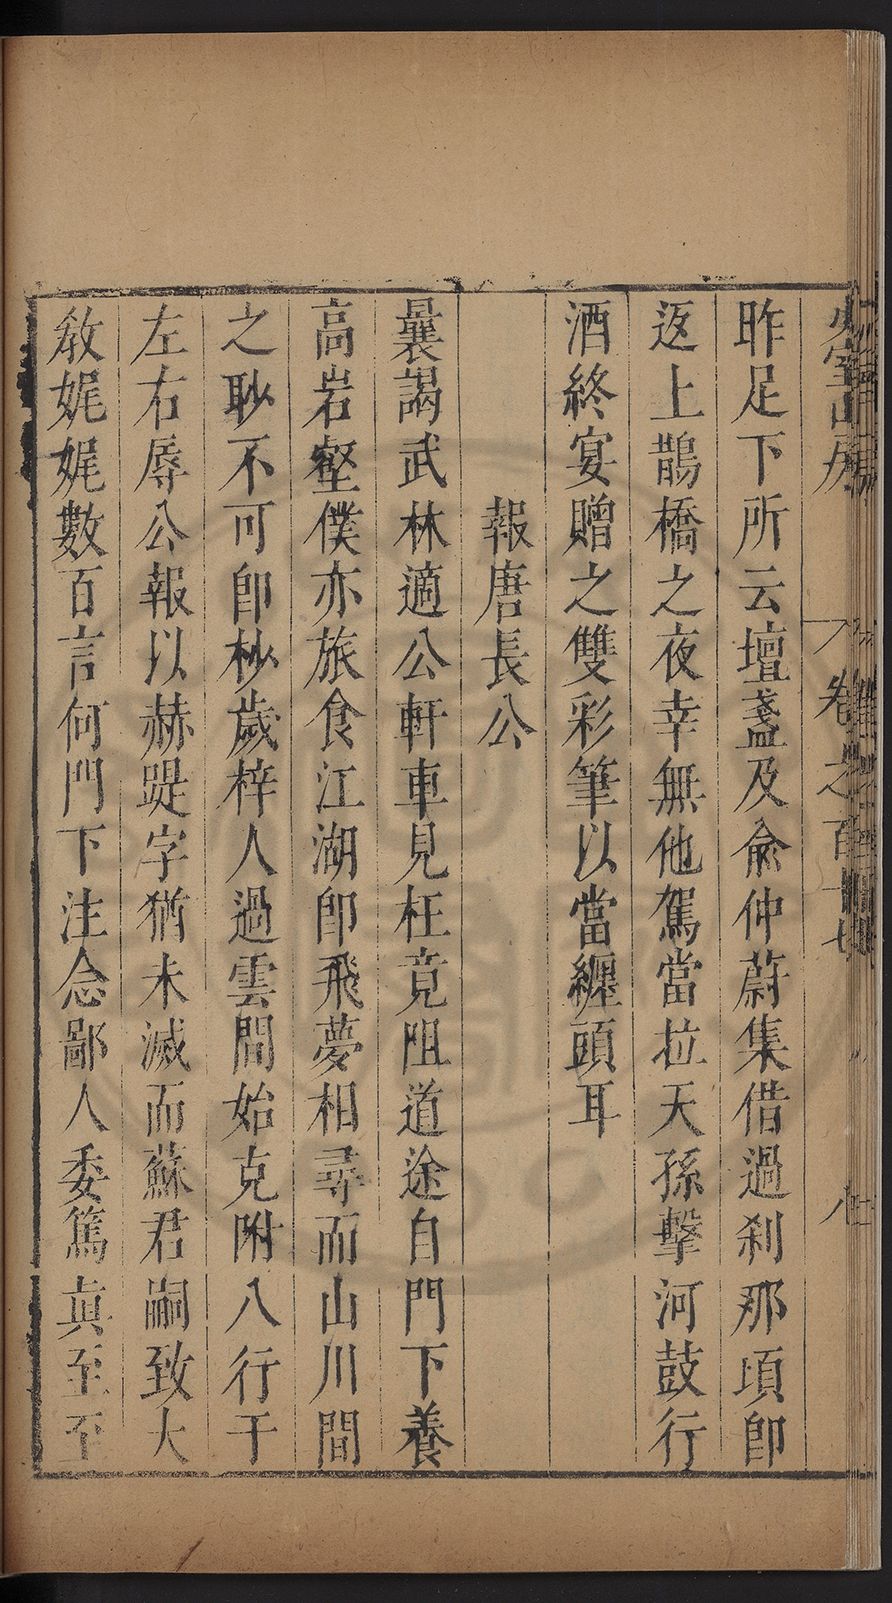 昨足下所云壇盞及俞仲蔚集借過刹那頃卽
返上鵲橋之夜幸無他駕當拉天孫擊河鼓行
酒終宴贈之雙彩筆以當纏頭耳
報唐長公
曩謁武林適公軒車見枉竟阻道途自門下養
高岩壑僕亦旅食江湖卽飛夢相尋而山川間
之眇不可卽杪歲梓人過雲間始克附八行干
左右辱公報以赫蹏字猶未滅而蘇君嗣致大
敎娓娓數百言何門下注念鄙人委篤眞至至
卷之百十七
八